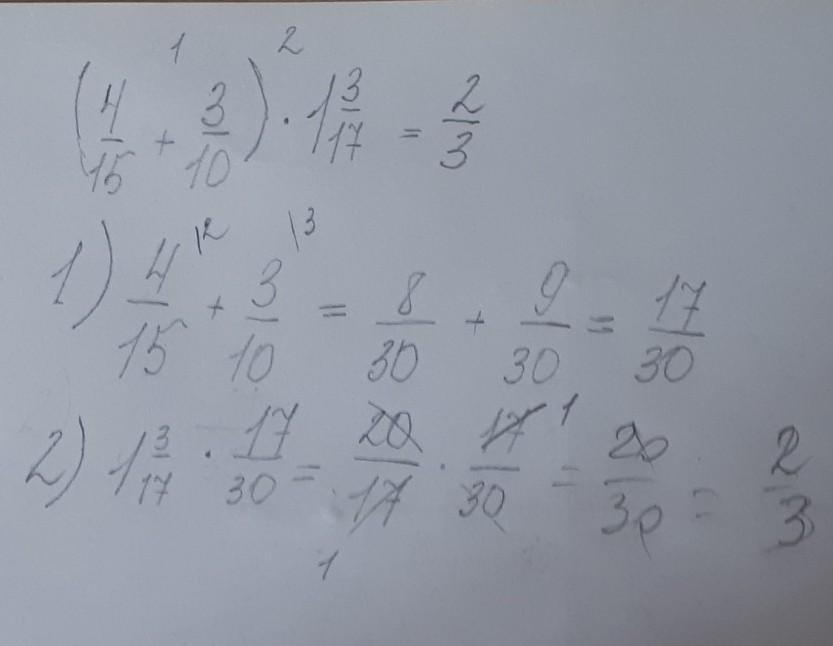 1 2
(4/15 + 3/10) · 1 3/17 = 2/3
1) 4/15 \2 + 3/10 \3 = 8/30 + 9/30 = 17/30
2) 1 3/17 · 17/30 = 20/17 · 17/30 1 = 20/30 = 2/3
1